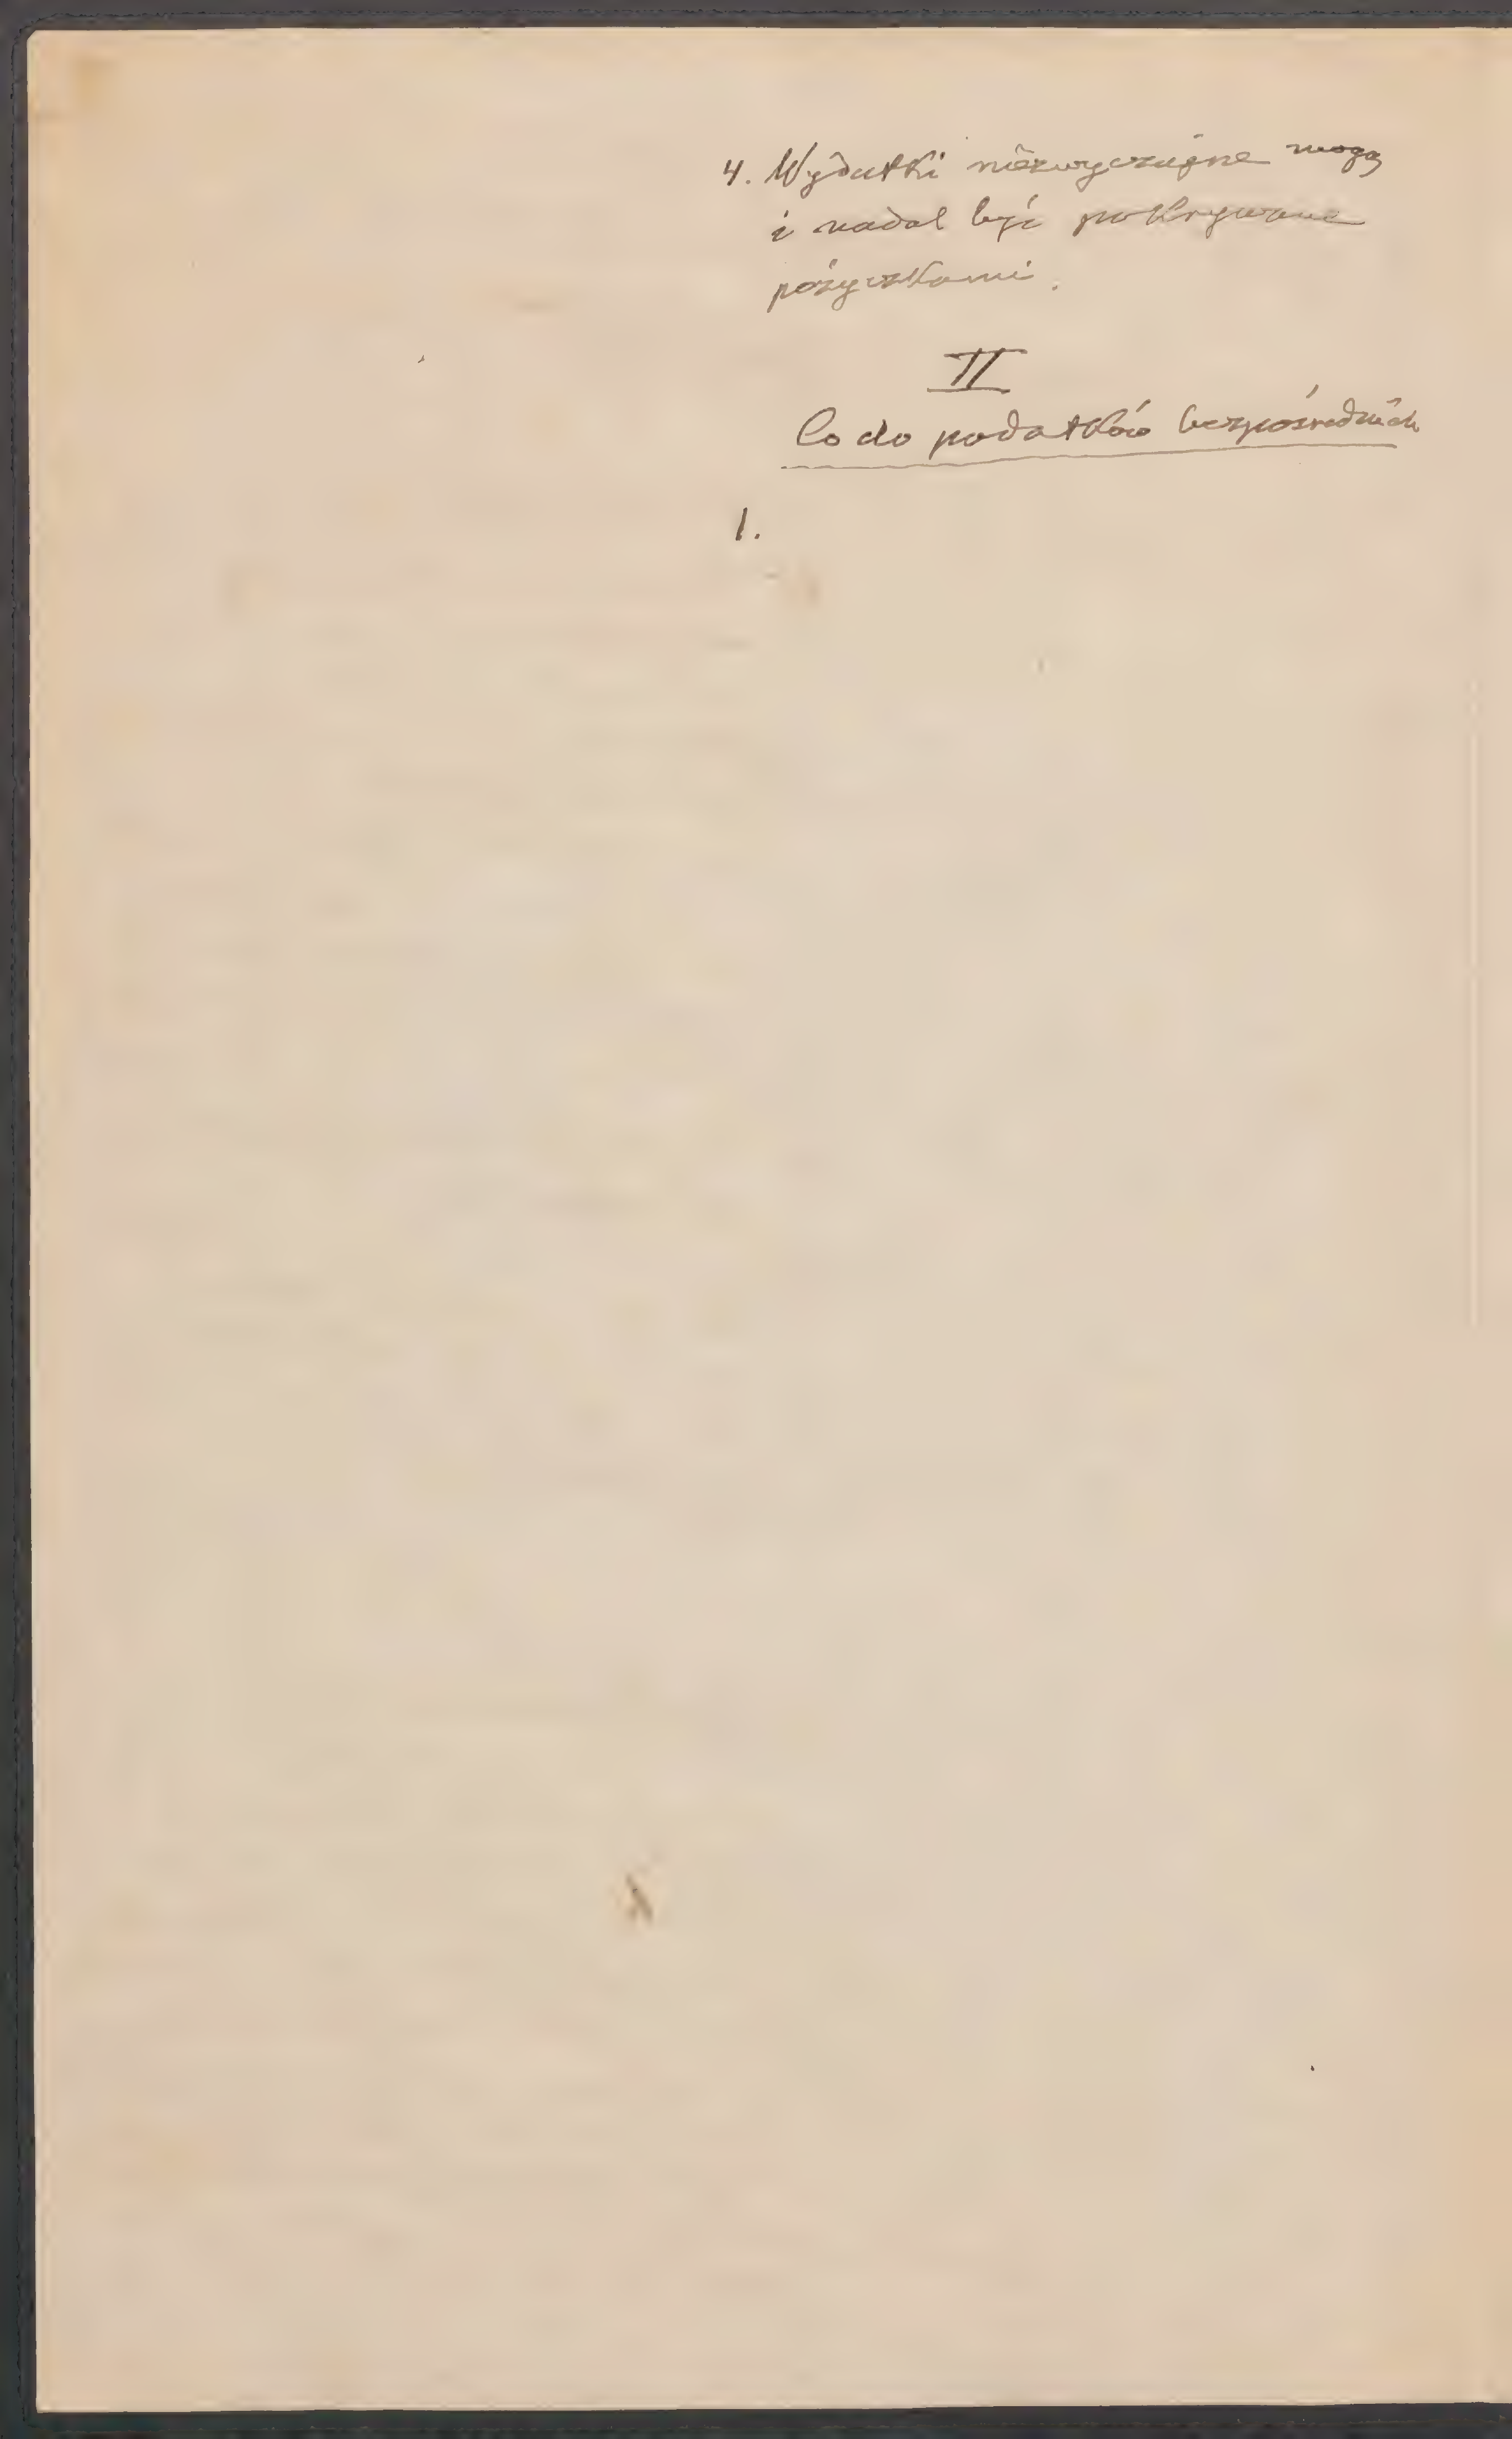 4. Wydatki niezwyczajne mogą
i nadal być pokrywane
pożyczkami.
II
Co do podatków bezpośrednich
1.